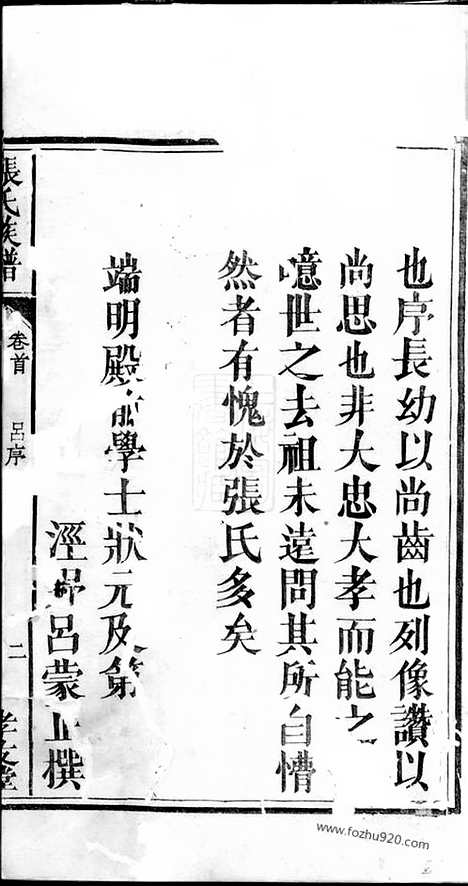 也序長幼以尚齒也列像讚以
尚思也非大忠大孝而能之
噫世之去祖未遠問其所自懵
然者有愧於張氏多矣
端明殿學士狀元及第
呂蒙正撰
張氏族譜
卷首
呂序
二
孝友堂
www.fozhu920.com